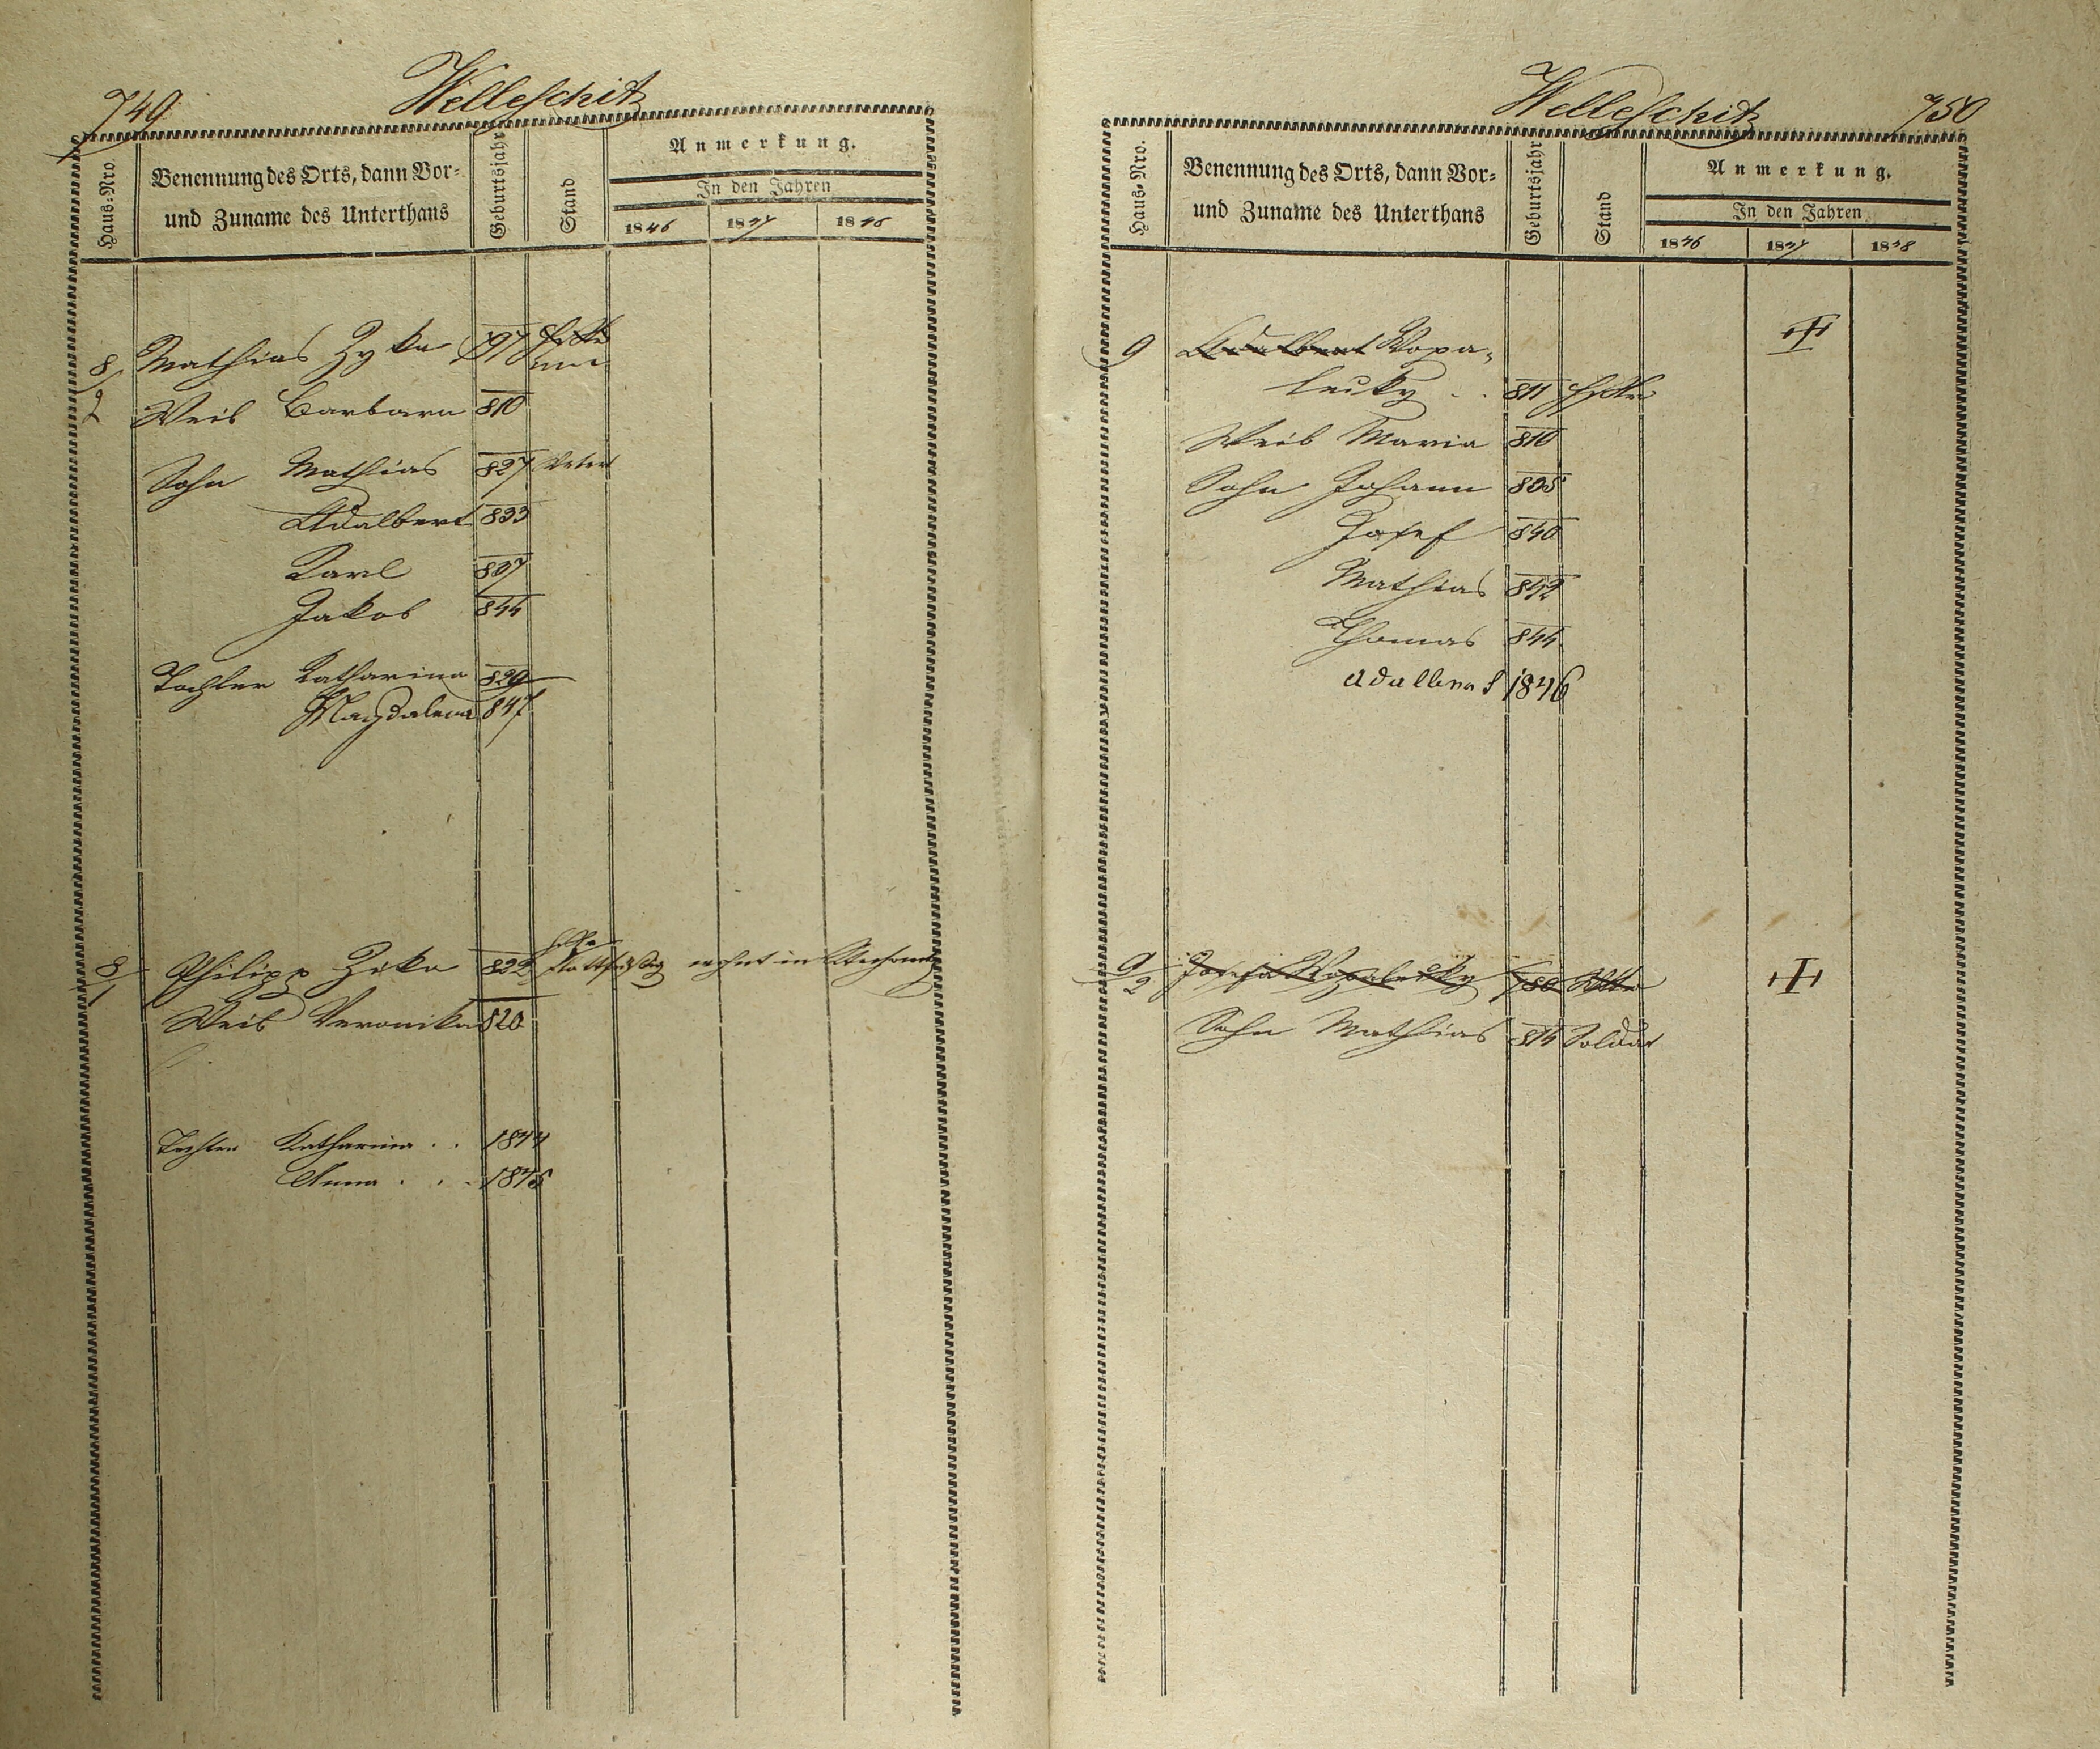 749
Welleschitz
Haus-Nro.
Benennung des Orts, dann Vor-
und Zuname des Unterthans
Geburtsjahr
Stand
Anmerkung.
In den Jahren
1846 1847 1846
8/2 Mathias Zyka 797
Weib Barbara 810
Sohn Mathias 827
Adalbert 833
Karl 837
Jakob 844
Tochter Katharina 829
Magdalena 847
8/1 Philipp Zika 822 wohnt in
Weib Veronika 820
Tochter Katharina . . 1844
Anna . . . 1845
Welleschitz
750
Haus-Nro.
Benennung des Orts, dann Vor-
und Zuname des Unterthans
Geburtsjahr
Stand
Anmerkung.
In den Jahren
1846 1847 1848
9 Adalbert Wopa-
lensky . . 811
Weib Maria 810
Sohn Johann 835
Josef 840
Mathias 842
Thomas 844
Adalbert 1846
9/2 Josefa Wopalensky 780
Sohn Mathias 814 Soldat